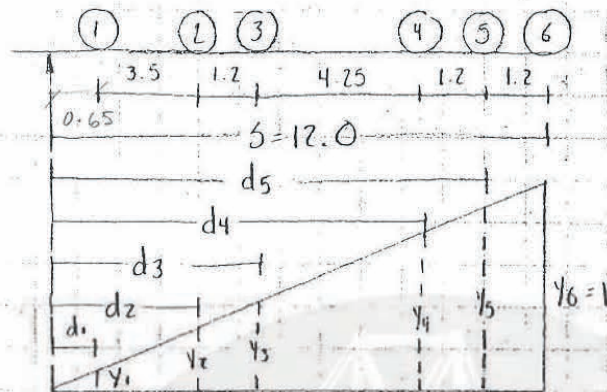 1 2 3 4 5 6
3.5 1.2 4.25 1.2 1.2
0.65
S=12.0
d5
d4
d3
d2
d1
y1 y2 y3 y4 y5 y6=1